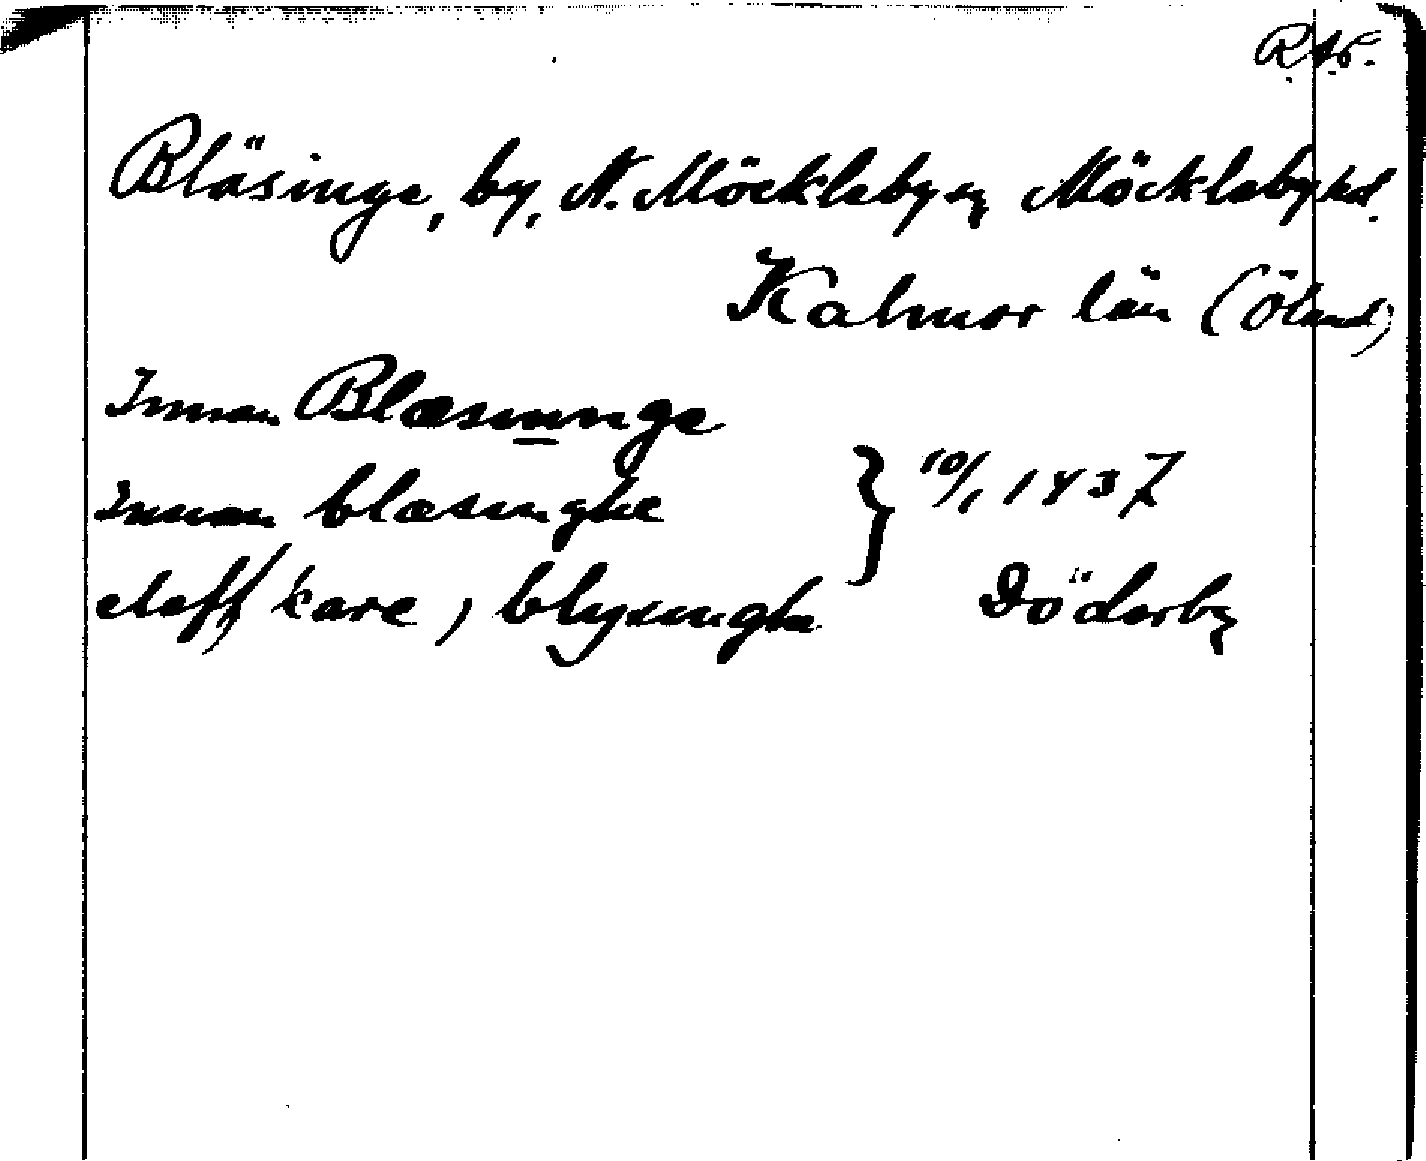 R.A.
Bläsinge, by, N. Möckleby sn, Möckleby hd.
Kalmar län (Öland)
Innan Blæsunnge
Innan blæsinghe
elaff kare, blysingha
} 10/1 1437
Döderby